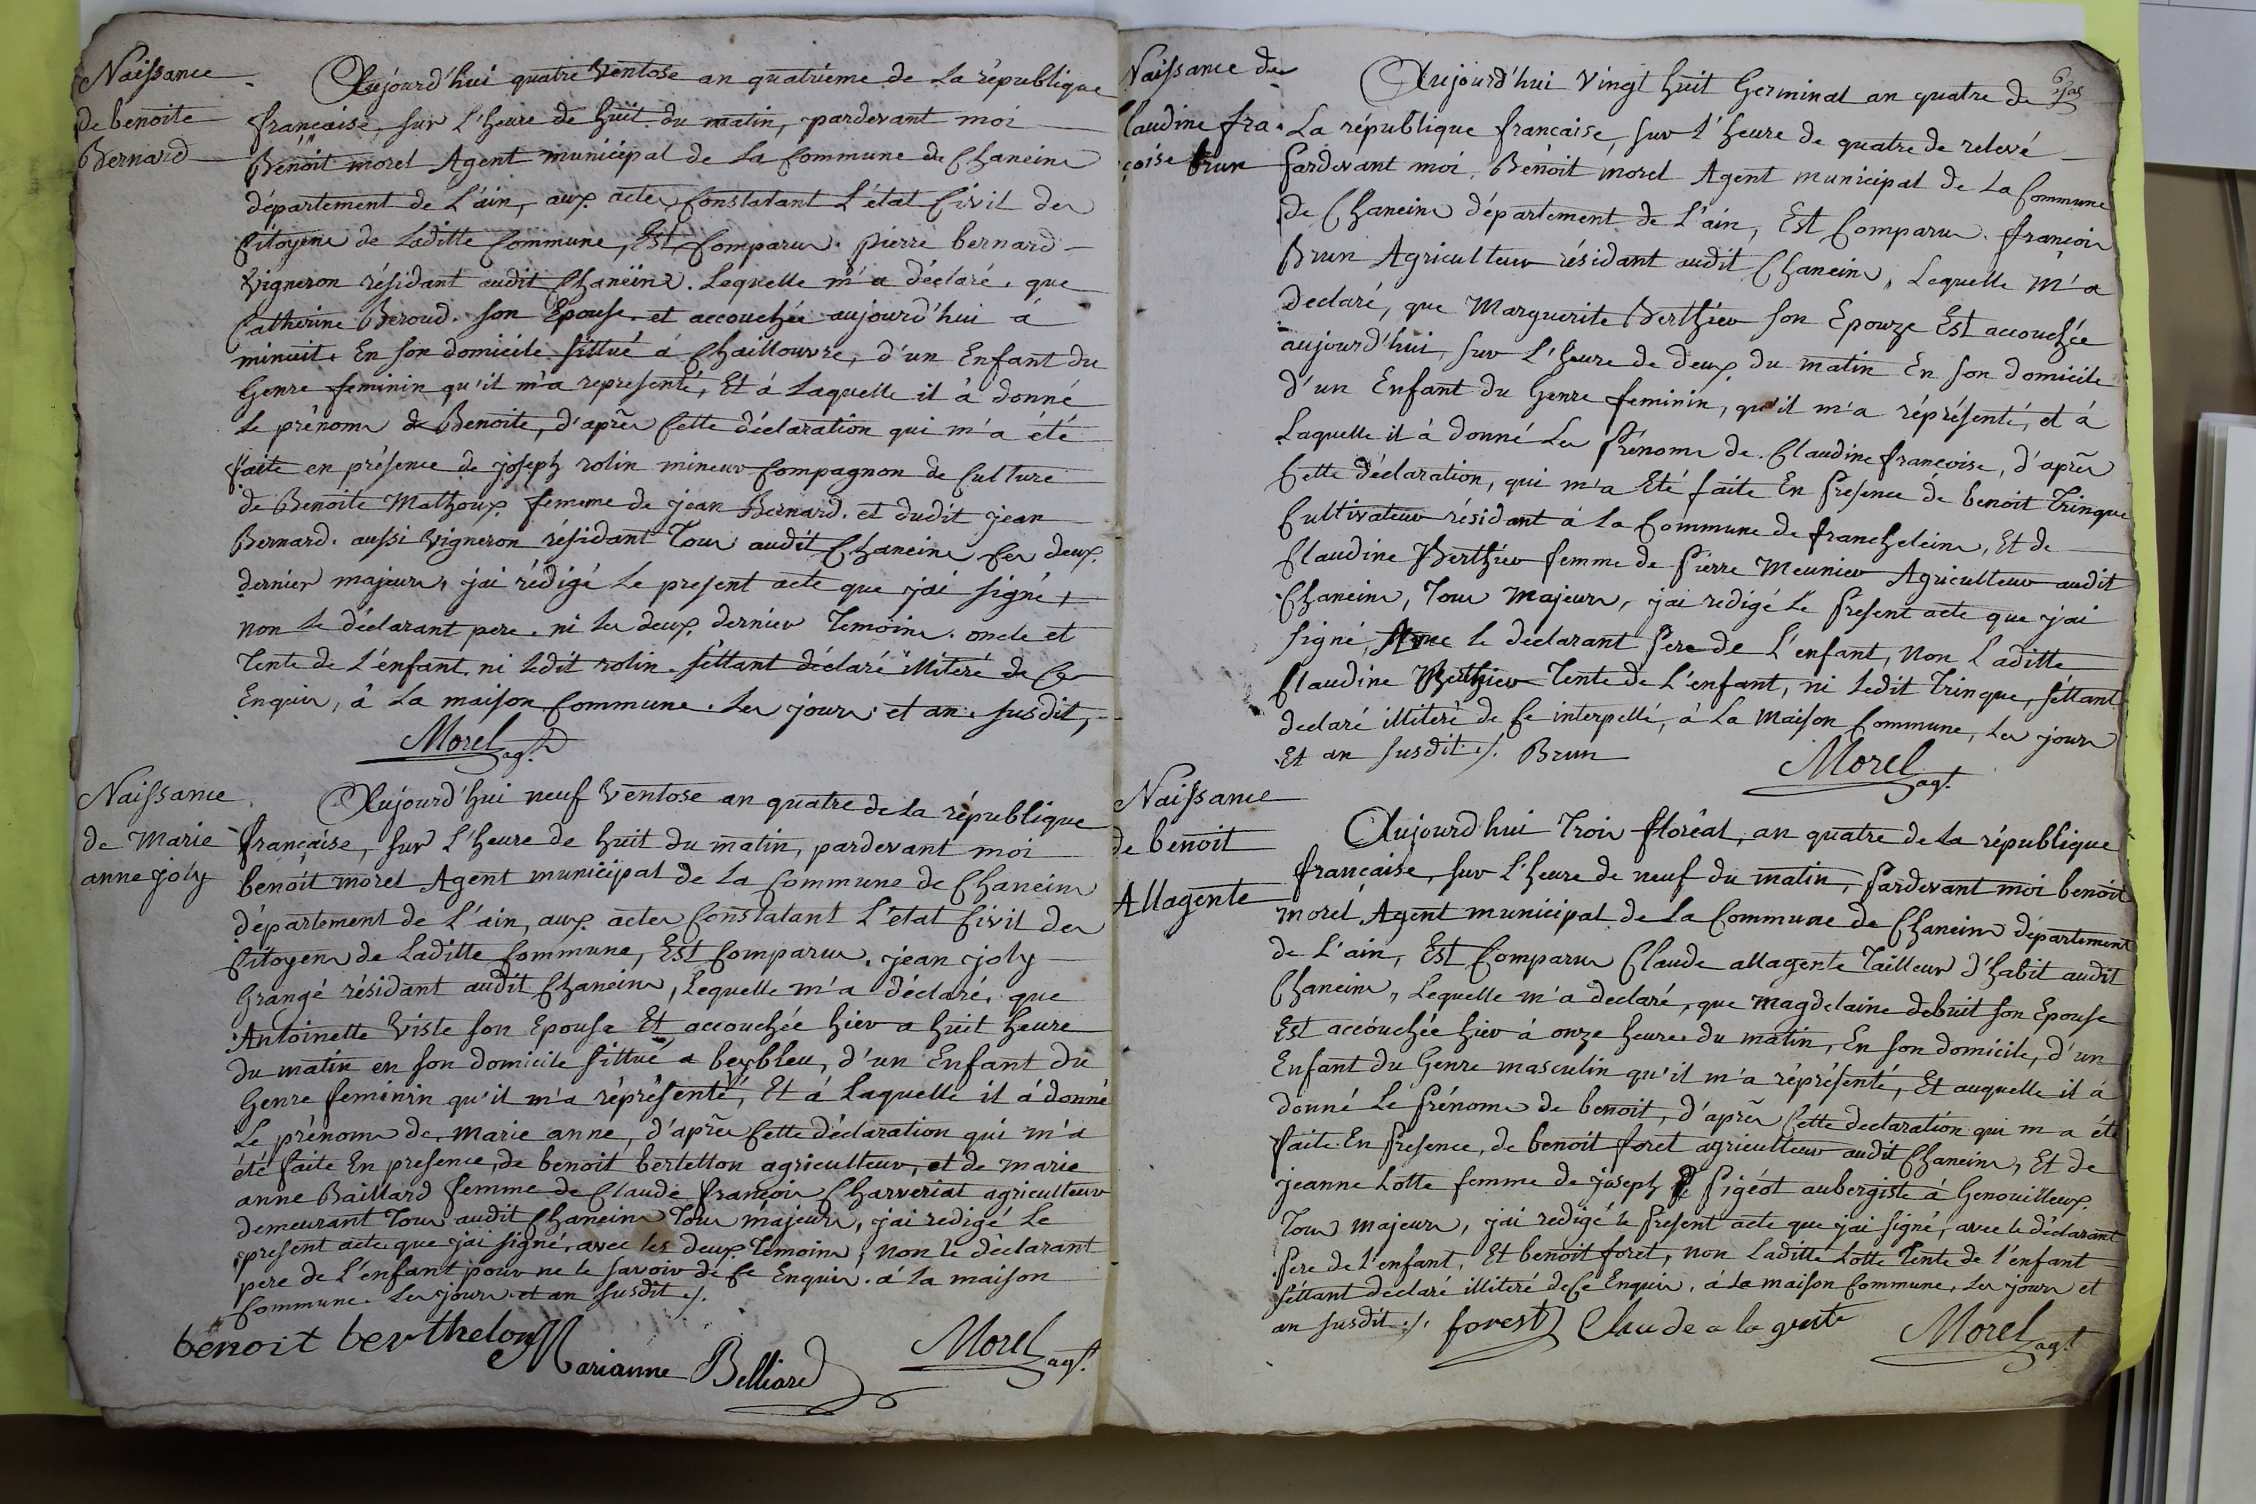 Naissance
de benoite
Bernard
Aujourd'hui quatre Ventose an quatrième de la république
française, sur l'heure de huit du matin, pardevant moi
Benoit morel Agent municipal de la Commune de Chaneins
département de l'ain, aux actes Constatant l'état Civil des
Citoyens de laditte Commune, Est Comparus. pierre bernard
vigneron résidant audit Chaneins. lequelle m'a déclaré. que
Catherine Beroud. son Epouse. et accouchée aujourd'hui á
minuit. En son domicile sittué á Chaillouvre, d'un Enfant du
Genre feminin qu'il m'a representé, Et á laquelle il á donné
le prénoms de Benoite, d'après Cette déclaration qui m'a été
faite en présence de joseph rolin mineur Compagnon de Culture
de Benoite Mathoux femme de jean Bernard. et dudit jean
Bernard. aussi vigneron résidant Tous audit Chaneins Ces deux
dernier majeurs, jai rédigé le present acte que jai signé,
non le déclarant pere. ni les deux dernier Temoins. oncle et
Tente de l'enfant. ni ledit rolin. séttant déclaré illiteré de Ce
Enquis, á la maison Commune. les jours. et an. susdit,
Morel agt.
Naissance
de Marie
anne joly
Aujourd'hui neuf Ventose an quatre de la république
française, sur l'heure de huit du matin, pardevant moi
benoit morel Agent municipal de la Commune de Chaneins
département de l'ain, aux actes Constatant l'état Civil des
Citoyens de laditte Commune, Est Comparus. jean joly
Grangé résidant audit Chaneins, lequelle m'a déclaré. que
Antoinette viste son Epouse Et accouchée hier a huit heure
du matin en son domicile sittué a beybleu, d'un Enfant du
Genre feminin qu'il m'a réprésenté, Et á laquelle il á donné
le prénoms de marie anne, d'après Cette déclaration qui m'a
été faite En presence, de benoit bertetton agriculteur, et de marie
anne Baillard femme de Claude François Charveriat agriculteur
demeurant Tous audit Chaneins Tous majeurs, jai redigé le
present acte que jai signé, avec les deux Temoins, non le déclarant
pere de l'enfant pour ne le savoir de Ce Enquis. á la maison
Commune. les jours et an susdit ./.
benoit berthelon
Marianne Belliard
Morel agt.
Naissance de
Claudine fra.
çoise brun
Aujourd'hui vingt huit Germinal an quatre de
la république francaise, sur l'heure de quatre de relevé
pardevant moi. Benoit morel Agent municipal de la Commune
de Chaneins département de l'ain, Est Comparus. françois
Brun Agriculteur résidant audit Chaneins, lequelle m'a
declaré, que Marguerite Berthier son Epouze Est accouchée
aujourd'hui, sur l'heure de deux du matin En son domicile
d'un Enfant du Genre feminin, qu'il m'a réprésenté, et á
laquelle il á donné les Prénoms de. Claudine francoise, d'après
Cette déclaration, qui m'a Eté faite En presence de benoit Trinque
Cultivateur résidant á la Commune de francheleins, Et de
Claudine Berthier femme de Pierre Meunier Agriculteur audit
Chaneins, Tous majeurs, jai redigé le present acte que jai
signé, Avec le déclarant Pere de l'enfant, non laditte
Claudine Berthier Tente de l'enfant, ni ledit Trinque, séttant
declaré illiteré de Ce interpellé, á la maison Commune, les jours
Et an susdit ./. Brun
Morel agt.
Naissance
de benoit
Allagente
Aujourd hui Trois floréal, an quatre de la république
française, sur l'heure de neuf du matin, pardevant moi benoit
morel, Agent municipal de la Commune de Chaneins département
de l'ain, Est Comparus Claude allagente Tailleur d'habit audit
Chaneins, lequelle m'a declaré, que magdelaine debuit son Epouse
Est accóuchée hier á onze heures du matin, En son domicile, d'un
Enfant du Genre masculin qu'il m'a réprésenté, Et auquelle il á
donné le Prénoms de benoit, d'après Cette declaration qui m a été
faite. En presence, de benoit foret agriculteur audit Chaneins, Et de
jeanne Lotte femme de joseph Pigéot aubergiste á Genouilleux
Tous majeurs, jai redigé le present acte que jai signé, avec le déclarant
Pere de l'enfant, Et benoit foret, non laditte Lotte Tente de l'enfant
séttant declaré illiteré de Ce Enquis, á la maison Commune, les jours et
an susdit ./. forest Claude a la geste
Morel agt.